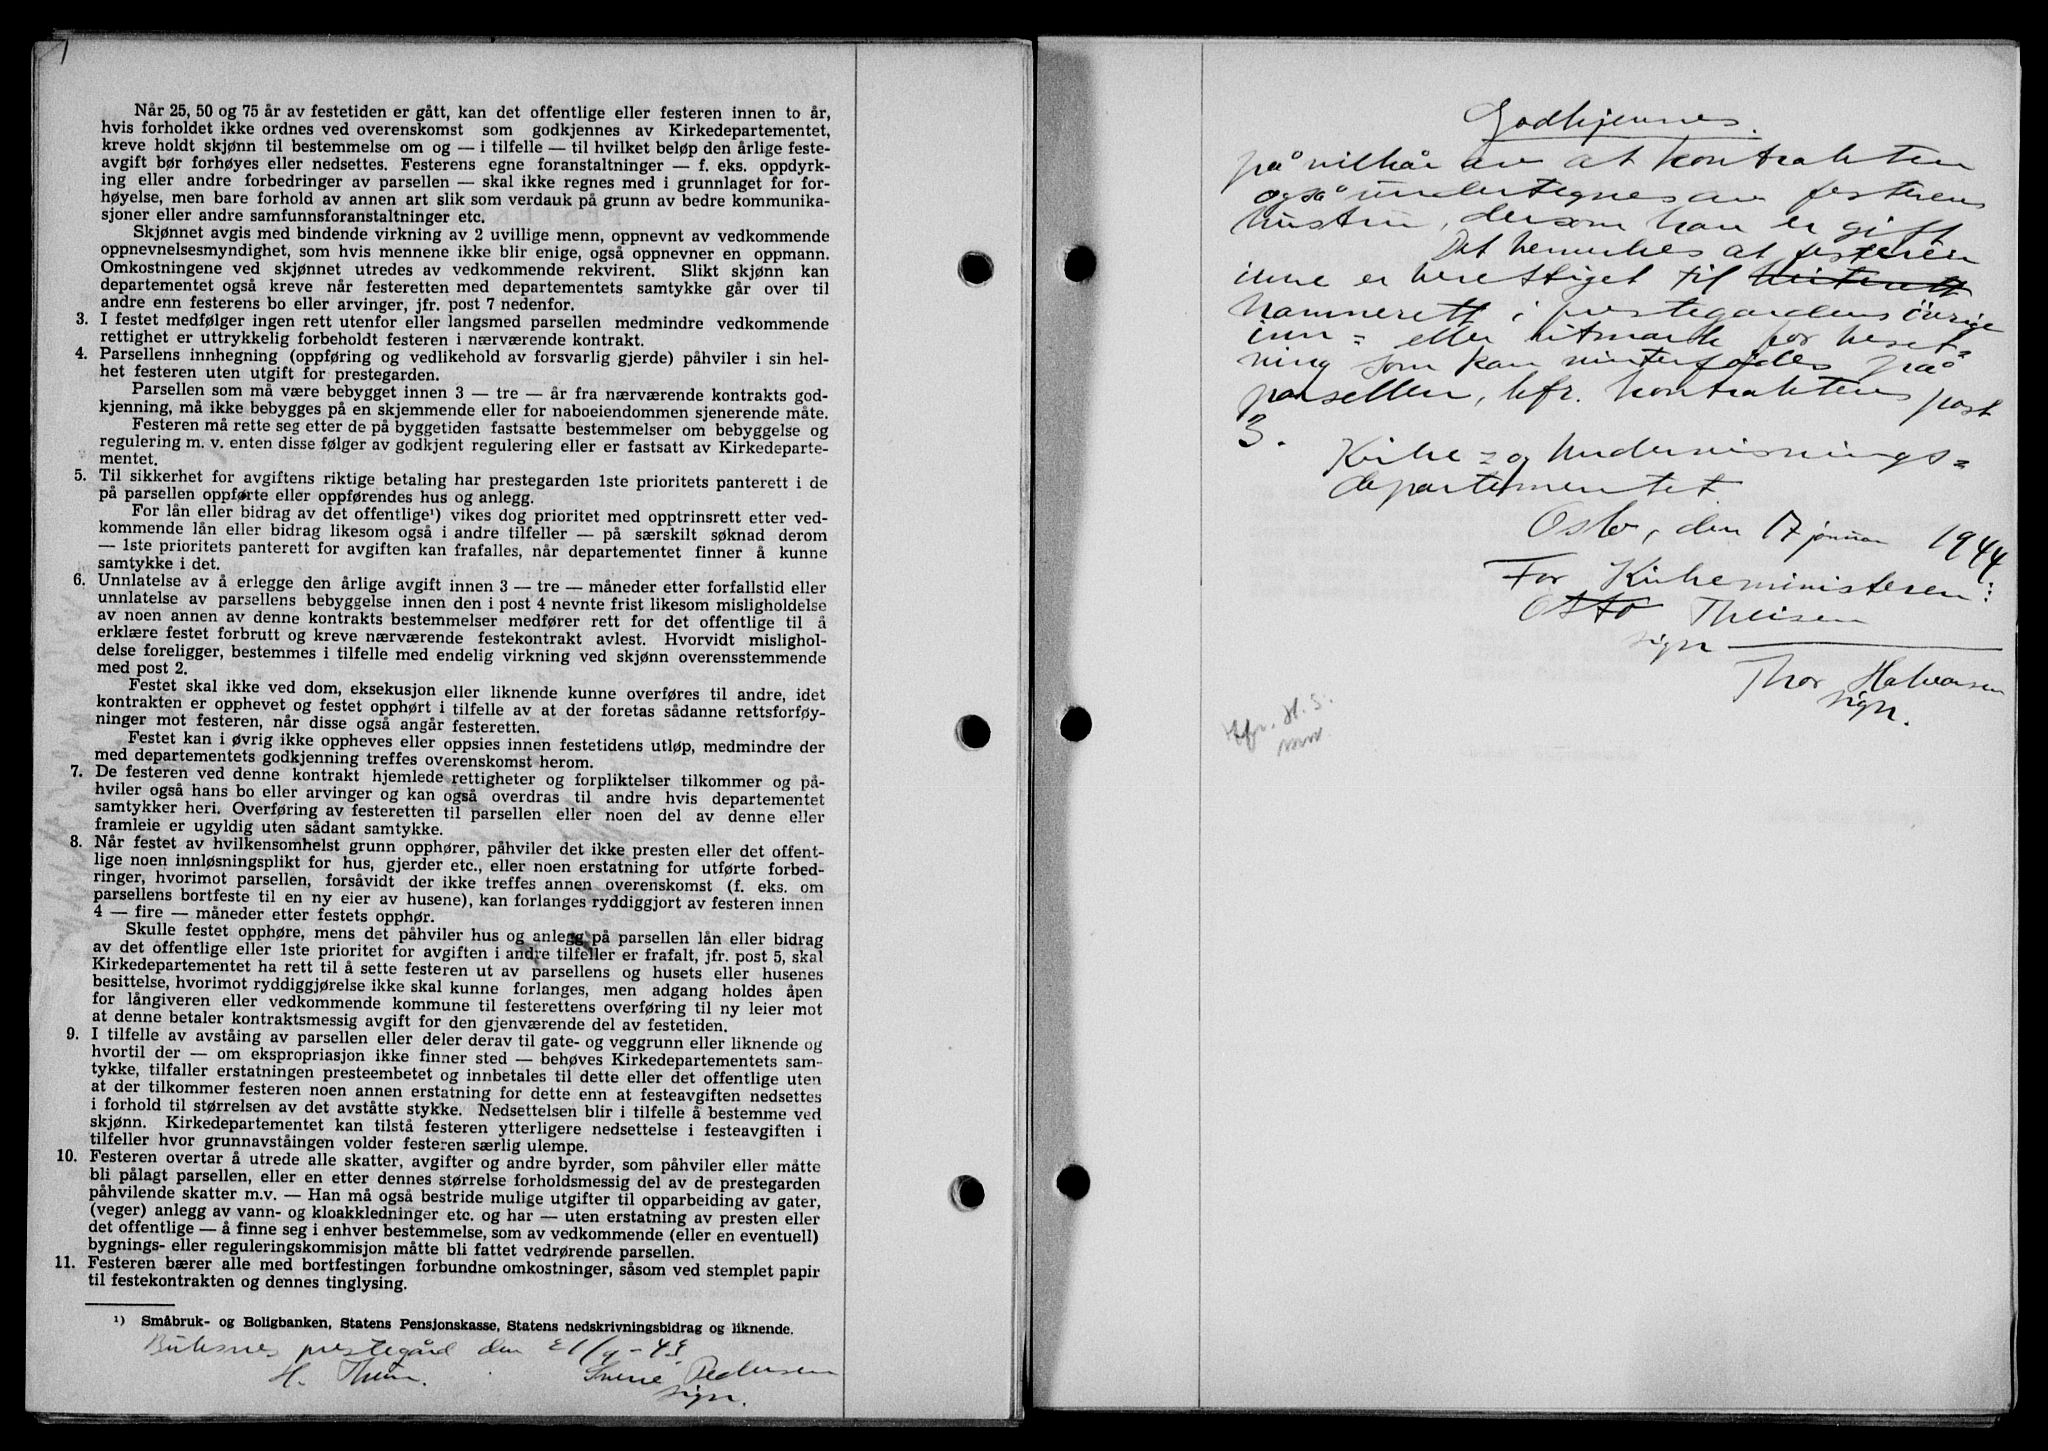 Når 25, 50 og 75 år av festetiden er gått, kan det offentlige eller festeren innen to år,
hvis forholdet ikke ordnes ved overenskomst som godkjennes av Kirkedepartementet,
kreve holdt skjønn til bestemmelse om og — i tilfelle — til hvilket beløp den årlige feste-
avgift bør forhøyes eller nedsettes. Festerens egne foranstaltninger — f. eks. oppdyrk-
ing eller andre forbedringer av parsellen — skal ikke regnes med i grunnlaget for for-
høyelse, men bare forhold av annen art slik som verdauk på grunn av bedre kommunika-
sjoner eller andre samfunnsforanstaltninger etc.
Skjønnet avgis med bindende virkning av 2 uvillige menn, oppnevnt av vedkommende
oppnevnelsesmyndighet, som hvis mennene ikke blir enige, også oppnevner en oppmann.
Omkostningene ved skjønnet utredes av vedkommende rekvirent. Slikt skjønn kan
departementet også kreve når festeretten med departementets samtykke går over til
andre enn festerens bo eller arvinger, jfr. post 7 nedenfor.
3. I festet medfølger ingen rett utenfor eller langsmed parsellen medmindre vedkommende
rettighet er uttrykkelig forbeholdt festeren i nærværende kontrakt.
4. Parsellens innhegning (oppføring og vedlikehold av forsvarlig gjerde) påhviler i sin hel-
het festeren uten utgift for prestegarden.
Parsellen som må være bebygget innen 3 — tre — år fra nærværende kontrakts god-
kjenning, må ikke bebygges på en skjemmende eller for naboeiendommen sjenerende måte.
Festeren må rette seg etter de på byggetiden fastsatte bestemmelser om bebyggelse og
regulering m. v. enten disse følger av godkjent regulering eller er fastsatt av Kirkedeparte-
mentet.
5. Til sikkerhet for avgiftens riktige betaling har prestegarden 1ste prioritets panterett i de
på parsellen oppførte eller oppførendes hus og anlegg.
For lån eller bidrag av det offentlige¹) vikes dog prioritet med opptrinsrett etter ved-
kommende lån eller bidrag likesom også i andre tilfeller — på særskilt søknad derom
— 1ste prioritets panterett for avgiften kan frafalles, når departementet finner å kunne
samtykke i det.
6. Unnlatelse av å erlegge den årlige avgift innen 3 — tre — måneder etter forfallstid eller
unnlatelse av parsellens bebyggelse innen den i post 4 nevnte frist likesom misligholdelse
av noen annen av denne kontrakts bestemmelser medfører rett for det offentlige til å
erklære festet forbrutt og kreve nærværende festekontrakt avlest. Hvorvidt mislighol-
delse foreligger, bestemmes i tilfelle med endelig virkning ved skjønn overensstemmende
med post 2.
Festet skal ikke ved dom, eksekusjon eller liknende kunne overføres til andre, idet
kontrakten er opphevet og festet opphørt i tilfelle av at der foretas sådanne rettsforføy-
ninger mot festeren, når disse også angår festeretten.
Festet kan i øvrig ikke oppheves eller oppsies innen festetidens utløp, medmindre der
med departementets godkjenning treffes overenskomst herom.
7. De festeren ved denne kontrakt hjemlede rettigheter og forpliktelser tilkommer og på-
hviler også hans bo eller arvinger og kan også overdras til andre hvis departementet
samtykker heri. Overføring av festeretten til parsellen eller noen del av denne eller
framleie er ugyldig uten sådant samtykke.
8. Når festet av hvilkensomhelst grunn opphører, påhviler det ikke presten eller det offent-
lige noen innløsningsplikt for hus, gjerder etc., eller noen erstatning for utførte forbed-
ringer, hvorimot parsellen, forsåvidt der ikke treffes annen overenskomst (f. eks. om
parsellens bortfeste til en ny eier av husene), kan forlanges ryddiggjort av festeren innen
4 — fire — måneder etter festets opphør.
Skulle festet opphøre, mens det påhviler hus og anlegg på parsellen lån eller bidrag
av det offentlige eller 1ste prioritet for avgiften i andre tilfeller er frafalt, jfr. post 5, skal
Kirkedepartementet ha rett til å sette festeren ut av parsellens og husets eller husenes
besittelse, hvorimot ryddiggjørelse ikke skal kunne forlanges, men adgang holdes åpen
for långiveren eller vedkommende kommune til festerettens overføring til ny leier mot
at denne betaler kontraktsmessig avgift for den gjenværende del av festetiden.
9. I tilfelle av avståing av parsellen eller deler derav til gate- og veggrunn eller liknende og
hvortil der — om ekspropriasjon ikke finner sted — behøves Kirkedepartementets sam-
tykke, tilfaller erstatningen presteembetet og innbetales til dette eller det offentlige uten
at der tilkommer festeren noen annen erstatning for dette enn at festeavgiften nedsettes
i forhold til størrelsen av det avståtte stykke. Nedsettelsen blir i tilfelle å bestemme ved
skjønn. Kirkedepartementet kan tilstå festeren ytterligere nedsettelse i festeavgiften i
tilfeller hvor grunnavståingen volder festeren særlig ulempe.
10. Festeren overtar å utrede alle skatter, avgifter og andre byrder, som påhviler eller måtte
bli pålagt parsellen, eller en etter dennes størrelse forholdsmessig del av de prestegarden
påhvilende skatter m.v. — Han må også bestride mulige utgifter til opparbeiding av gater,
(veger) anlegg av vann- og kloakkledninger etc. og har — uten erstatning av presten eller
det offentlige — å finne seg i enhver bestemmelse, som av vedkommende (eller en eventuell)
bygnings- eller reguleringskommisjon måtte bli fattet vedrørende parsellen.
11. Festeren bærer alle med bortfestingen forbundne omkostninger, såsom ved stemplet papir
til festekontrakten og dennes tinglysing.
¹) Småbruk- og Boligbanken, Statens Pensjonskasse, Statens nedskrivningsbidrag og liknende.
Buksnes prestegård den 21/9-43
H. Thun. Sverre Pedersen
sign.
Godkjennes.
på vilkår av at kontrakten
også undertegnes av festerens
hustru, dersom han er gift.
Det bemerkes at festeren
inne er berettiget til
hamnerett i prestegardens øvrige
inn- eller utmark for beset-
ning som kan vinterfødes på
parsellen, kfr. kontraktens post
3.
Kirke- og Undervisnings-
departementet
Oslo, den 17 januar 1944
For Kirkeministeren:
Oslo Theisen
sign
Thor Halvorsen
sign.